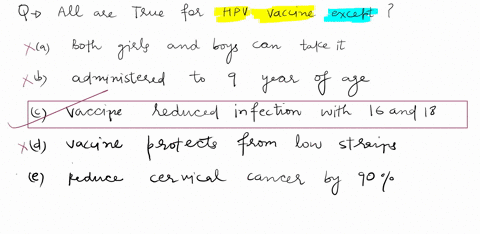 Q→ All are True for HPV vaccine except ?
x(a) Both girls and boys can take it
x(b) administered to 9 year of age
(c) vaccine reduced infection with 16 and 18
x(d) vaccine protects from low strains
(e) reduce cervical cancer by 90%